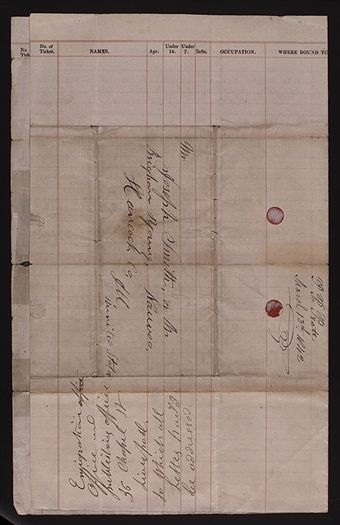 No.
Tick
No. of
Ticket.
NAMES.
Age.
Under
14.
Under
7.
Infts.
OCCUPATION.
WHERE BOUND TO
Mr
Joseph Smith, or Mr
Brigham Young, Nauvoo.
Hancock Co Ill.
United States
P. P. P.
March 13th 1842
Emigration office
Office and
publishing office
36 Chapel St
Liverpool
to which all
letters should
be addressed.